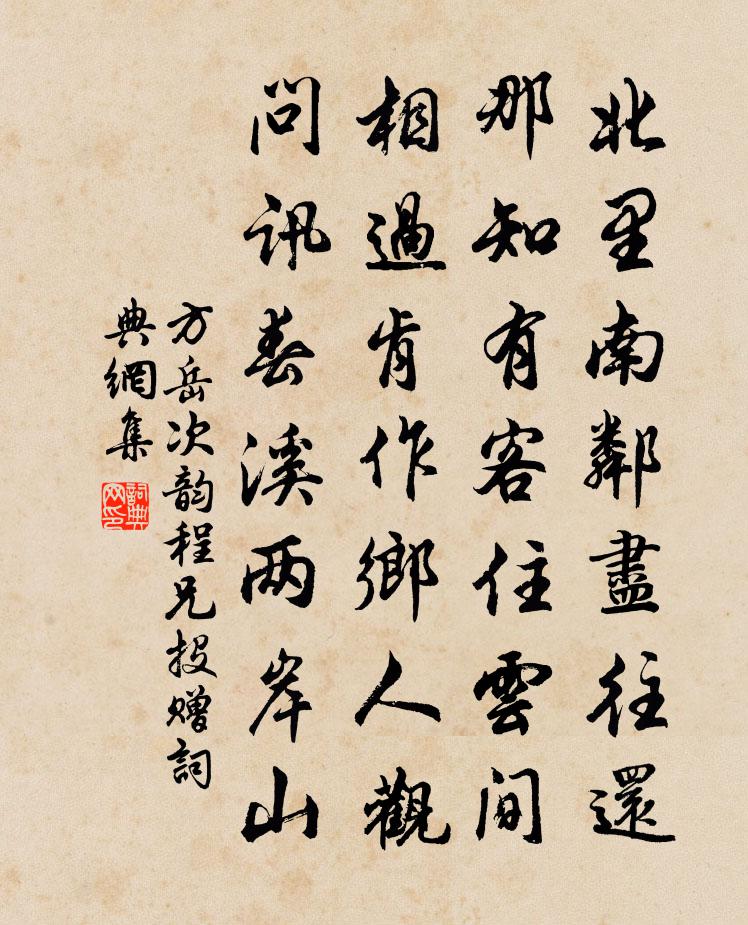 北里南鄰盡往還
那知有客住雲間
相過肯作鄉人觀
問訊春溪兩岸山
方岳次韵程兄投赠詞
典網集
詞典网印